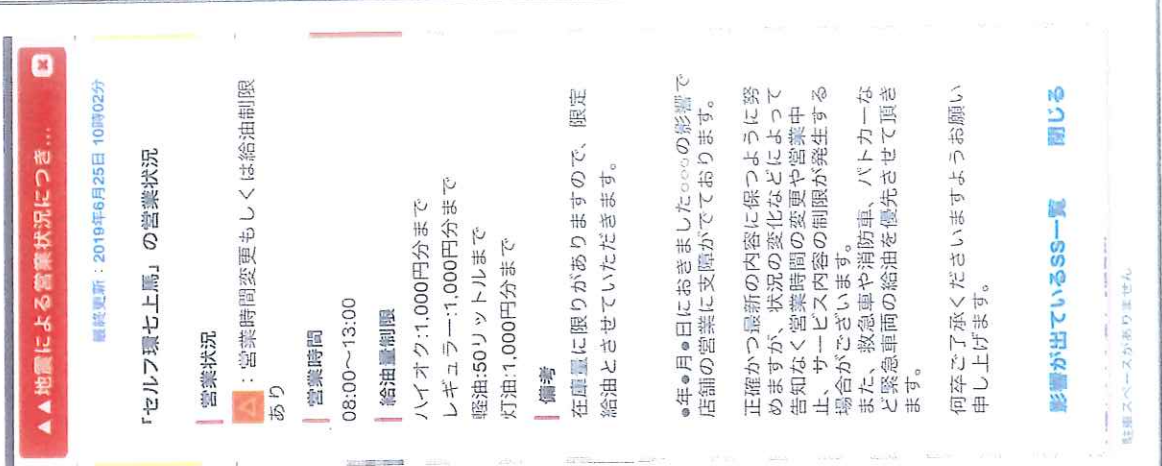 ▲▲地震による営業状況につき...
最終更新：2019年6月25日 10時02分
「セルフ環七上馬」の営業状況
営業状況
△：営業時間変更もしくは給油制限
あり
営業時間
08:00～13:00
給油量制限
ハイオク:1,000円分まで
レギュラー:1,000円分まで
軽油:50リットルまで
灯油:1,000円分まで
備考
在庫量に限りがありますので、限定
給油とさせていただきます。
●年●月●日におきました○○○の影響で
店舗の営業に支障がでております。
正確かつ最新の内容に保つように努
めますが、状況の変化などによって
告知なく営業時間の変更や営業中
止、サービス内容の制限が発生する
場合がございます。
また、救急車や消防車、パトカーな
ど緊急車両の給油を優先させて頂き
ます。
何卒ご了承くださいますようお願い
申し上げます。
影響が出ているSS一覧
閉じる
駐車スペースがありません